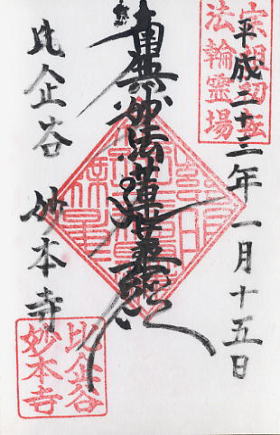 宗祖初転
法輪霊場
平成二十二年一月十五日
南無妙法蓮華経
比企谷 妙本寺
比企谷
妙本寺